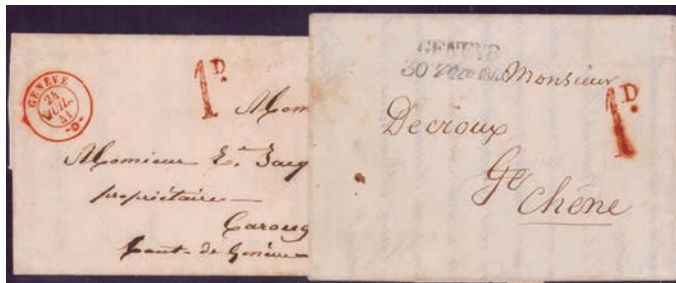 GENÈVE
24
JUIL.
41
1D.
Mom
Monsieur
propriétaire
Caroug
Cant. de Genève
GENEVE
30
Monsieur
1D.
Decroux
Ge
Chêne